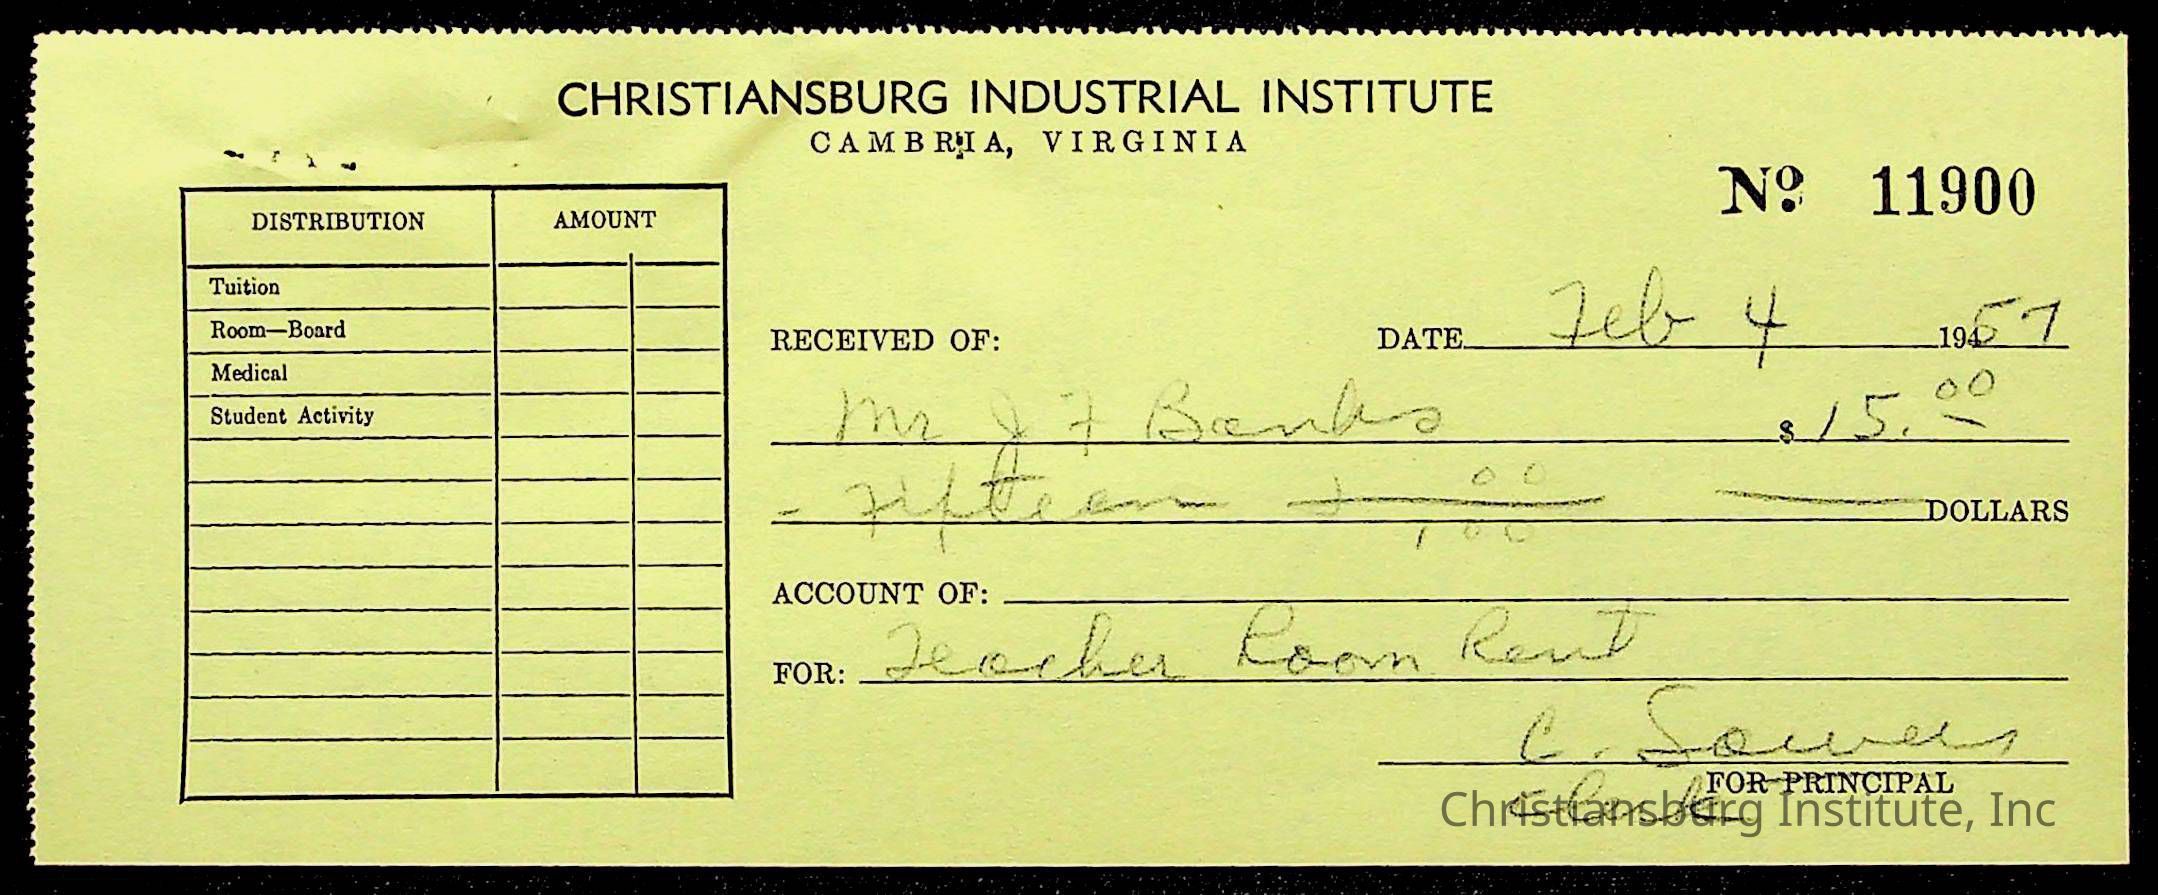 CHRISTIANSBURG INDUSTRIAL INSTITUTE
CAMBRIA, VIRGINIA
Nº 11900
DISTRIBUTION AMOUNT
Tuition
Room—Board
Medical
Student Activity
RECEIVED OF: DATE Feb 4 1957
Mr J F Banks $ 15.00
- Fifteen + 00/100 — DOLLARS
ACCOUNT OF:
FOR: Teacher Room Rent
C. Sowers
FOR PRINCIPAL
Clerk
Christiansburg Institute, Inc